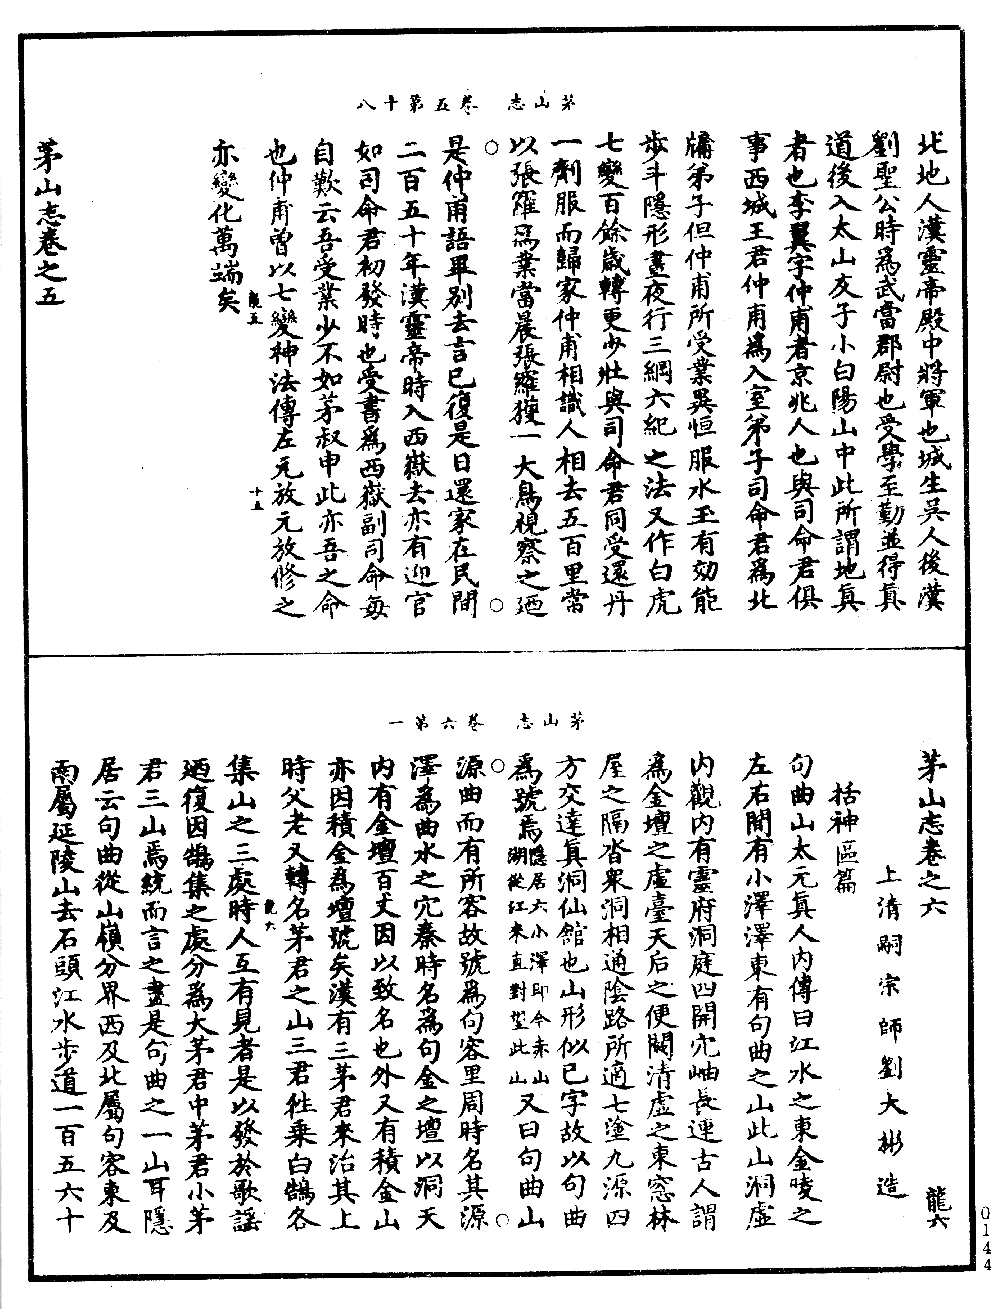 茅山志　卷五第十八
北地人漢靈帝殿中將軍也城生吳人後漢
劉聖公時爲武當郡尉也受學至勤並得真
道後入太山友子小白陽山中此所謂地真
者也李翼字仲甫者京兆人也與司命君俱
事西城王君仲甫爲入室弟子司命君爲北
牖弟子但仲甫所受業異恒服水玉有効能
步斗隱形晝夜行三綱六紀之法又作白虎
七變百餘歲轉更少壯與司命君同受還丹
一劑服而歸家仲甫相識人相去五百里常
以張羅爲業當晨張羅獲一大鳥視察之廼
是仲甫語畢別去言已復是日還家在民間
二百五十年漢靈帝時入西嶽去亦有迎官
如司命君初發時也受書爲西嶽副司命每
自歎云吾受業少不如茅叔申此亦吾之命
也仲甫曽以七變神法傳左元放元放修之
亦變化萬端矣
龍五
十五
茅山志卷之五
茅山志　卷六第一
茅山志卷之六
龍六
上清嗣宗師劉大彬造
括神區篇
句曲山太元真人內傳曰江水之東金陵之
左右間有小澤澤東有句曲之山此山洞虛
內觀內有靈府洞庭四開穴岫長連古人謂
爲金壇之虛臺天后之便闕清虛之東窓林
屋之隔沓衆洞相通陰路所適七塗九源四
方交達真洞仙館也山形似巳字故以句曲
爲號焉隱居六小澤即今赤山湖從江來直對望此山又曰句曲山
源曲而有所容故號爲句容里周時名其源
澤爲曲水之穴秦時名爲句金之壇以洞天
內有金壇百丈因以致名也外又有積金山
亦因積金爲壇號矣漢有三茅君來治其上
時父老又轉名茅君之山三君往乘白鵠各
龍六
集山之三處時人互有見者是以發於歌謡
廼復因鵠集之處分爲大茅君中茅君小茅
君三山焉統而言之盡是句曲之一山耳隱
居云句曲從山嶺分界西及北屬句容東及
南屬延陵山去石頭江水步道一百五六十
0144